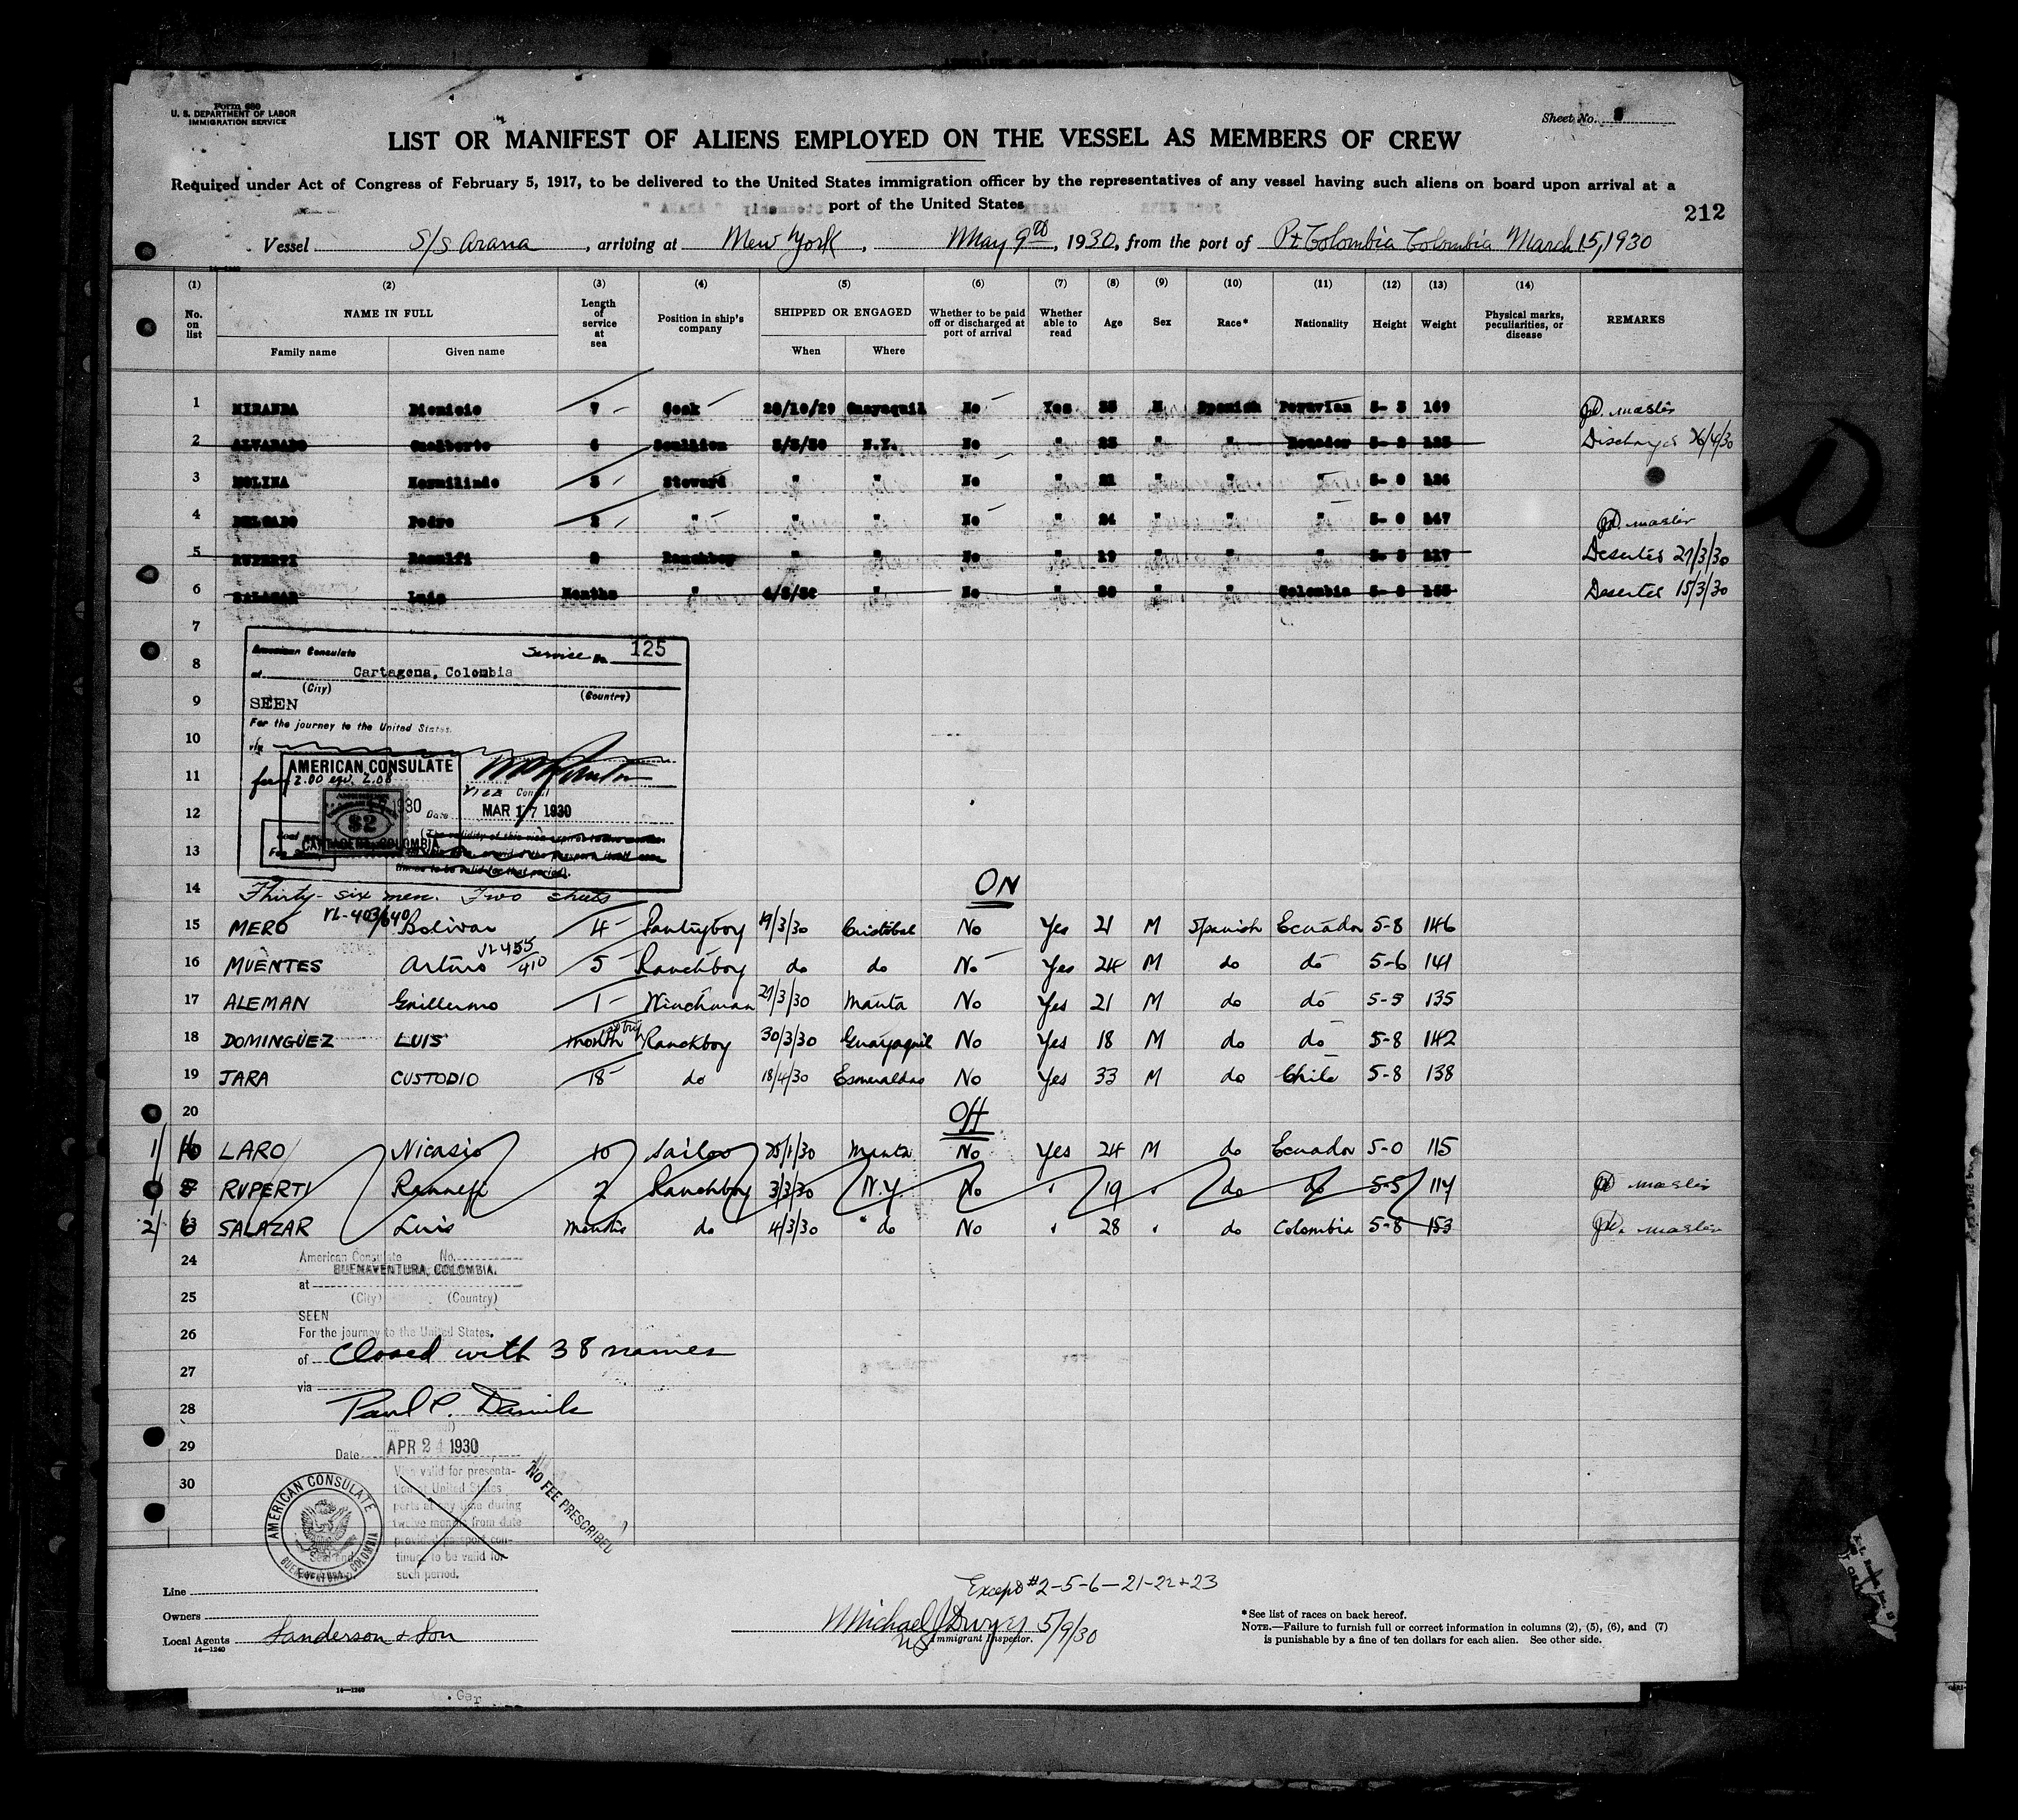 Form 680
U. S. DEPARTMENT OF LABOR
IMMIGRATION SERVICE
Sheet No.
LIST OR MANIFEST OF ALIENS EMPLOYED ON THE VESSEL AS MEMBERS OF CREW
Required under Act of Congress of February 5, 1917, to be delivered to the United States immigration officer by the representatives of any vessel having such aliens on board upon arrival at a
port of the United States
212
Vessel S/S Arana, arriving at New York, May 9th, 1930, from the port of Pt Colombia Colombia March 15, 1930
14-1240
(1) (2) (3) (4) (5) (6) (7) (8) (9) (10) (11) (12) (13) (14)
No. on list NAME IN FULL Family name Given name Length of service at sea Position in ship's company SHIPPED OR ENGAGED When Where Whether to be paid off or discharged at port of arrival Whether able to read Age Sex Race* Nationality Height Weight Physical marks, peculiarities, or disease REMARKS
1 MIRANDA Dionicio 7 Cook 28/10/29 Guayaquil No Yes 35 M Spanish Peruvian 5- 5 169 master
2 ALVARADO Gualberto 6 Scullion 3/3/30 N.Y. No " 23 " " Ecuador 5- 2 125 Discharged 26/4/30
3 MOLINA Hermilindo 5 Steward " " No " 21 " " " 5- 0 124
4 DELGADO Pedro 2 " " " No " 24 " " " 5- 0 147 master
5 RUPERTI Ranulfi 2 Ranchboy " " No " 19 " " " 5- 5 117 Deserted 27/3/30
6 SALAZAR Luis Months " 4/3/30 " No " 28 " " Colombia 5- 8 153 Deserted 15/3/30
7
8
9
10
11
12
13
American Consulate Service No. 125
at Cartagena, Colombia
(City) (Country)
SEEN
For the journey to the United States.
via
AMERICAN CONSULATE
fee $2.00 eqv. 2.08
Vice Consul
1930 Date MAR 17 1930
$2
CARTAGENA, COLOMBIA
14 Thirty-six men. Two sheets
ON
15 MERO Bolivar 4 Pantryboy 19/3/30 Cristobal No Yes 21 M Spanish Ecuador 5-8 146
16 MUENTES Arturo 5 Ranchboy do do No Yes 24 M do do 5-6 141
17 ALEMAN Guillermo 1 Winchman 27/3/30 Manta No Yes 21 M do do 5-5 135
18 DOMINGUEZ LUIS month Ranchboy 30/3/30 Guayaquil No Yes 18 M do do 5-8 142
19 JARA CUSTODIO 18 do 18/4/30 Esmeraldas No Yes 33 M do Chile 5-8 138
20
Off
1/ 16 LARO Nicasio 10 Sailor 25/1/30 Manta No Yes 24 M do Ecuador 5-0 115
RUPERTI 2 Ranchboy 3/3/30 N.Y. No " 19 " do do 5-5 117 master
2/ SALAZAR Luis Months do 4/3/30 do No " 28 " do Colombia 5-8 153 master
24
25
26
27
28
29
30
American Consulate No.
BUENAVENTURA, COLOMBIA.
at
(City) (Country)
SEEN
For the journey to the United States.
of Closed with 38 names
via
Paul C. Daniels
Date APR 24 1930
Visa valid for presenta-
tion at United States
ports at any time during
twelve months from date
provided passport con-
tinues to be valid for
such period.
NO FEE PRESCRIBED
AMERICAN CONSULATE
BUENAVENTURA, COLOMBIA
Line
Owners
Local Agents Sanderson & Son
14-1240
Except #2-5-6-21-22+23
Michael J Dwyer 5/9/30
US Immigrant Inspector.
*See list of races on back hereof.
NOTE.—Failure to furnish full or correct information in columns (2), (5), (6), and (7)
is punishable by a fine of ten dollars for each alien. See other side.
14-1240